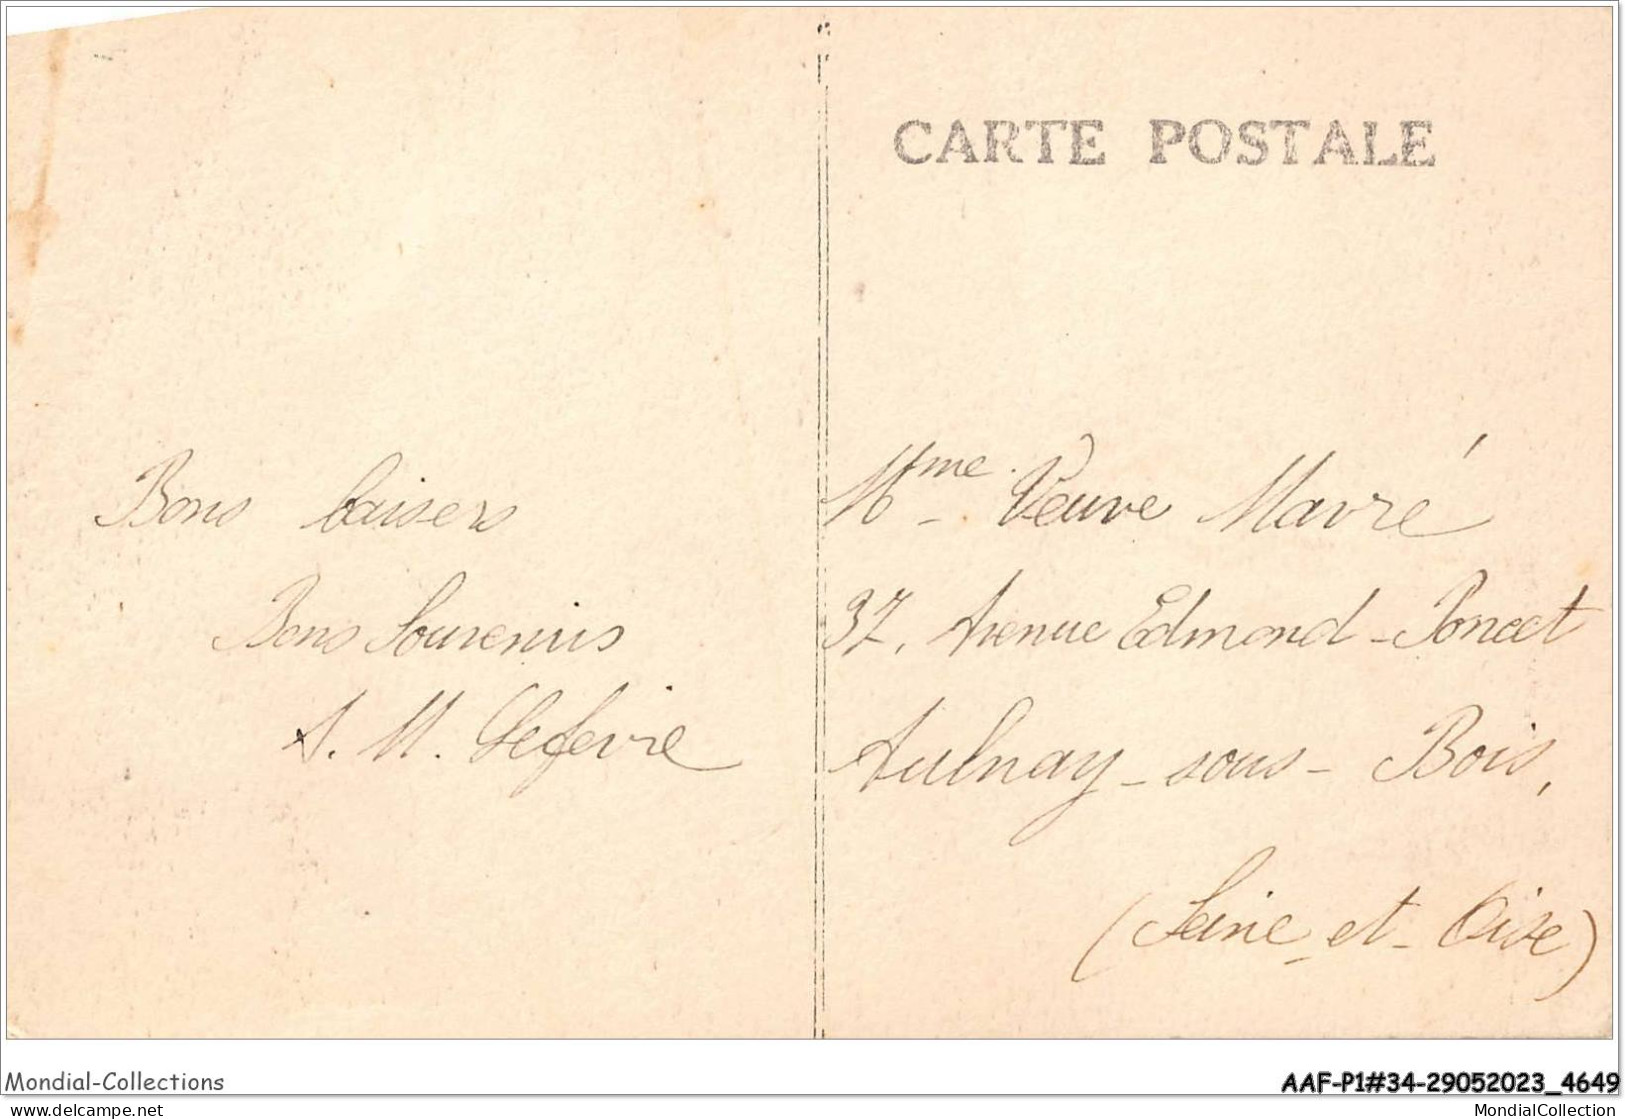 CARTE POSTALE
Bons baisers
Bons Souvenirs
A. M. Lefevre
Mme. Veuve Mavré
37, Avenue Edmond-Poncet
Aulnay-sous-Bois,
(Seine-et-Oise)
Mondial-Collections
AAF-P1#34-29052023_4649
www.delcampe.net
MondialCollection